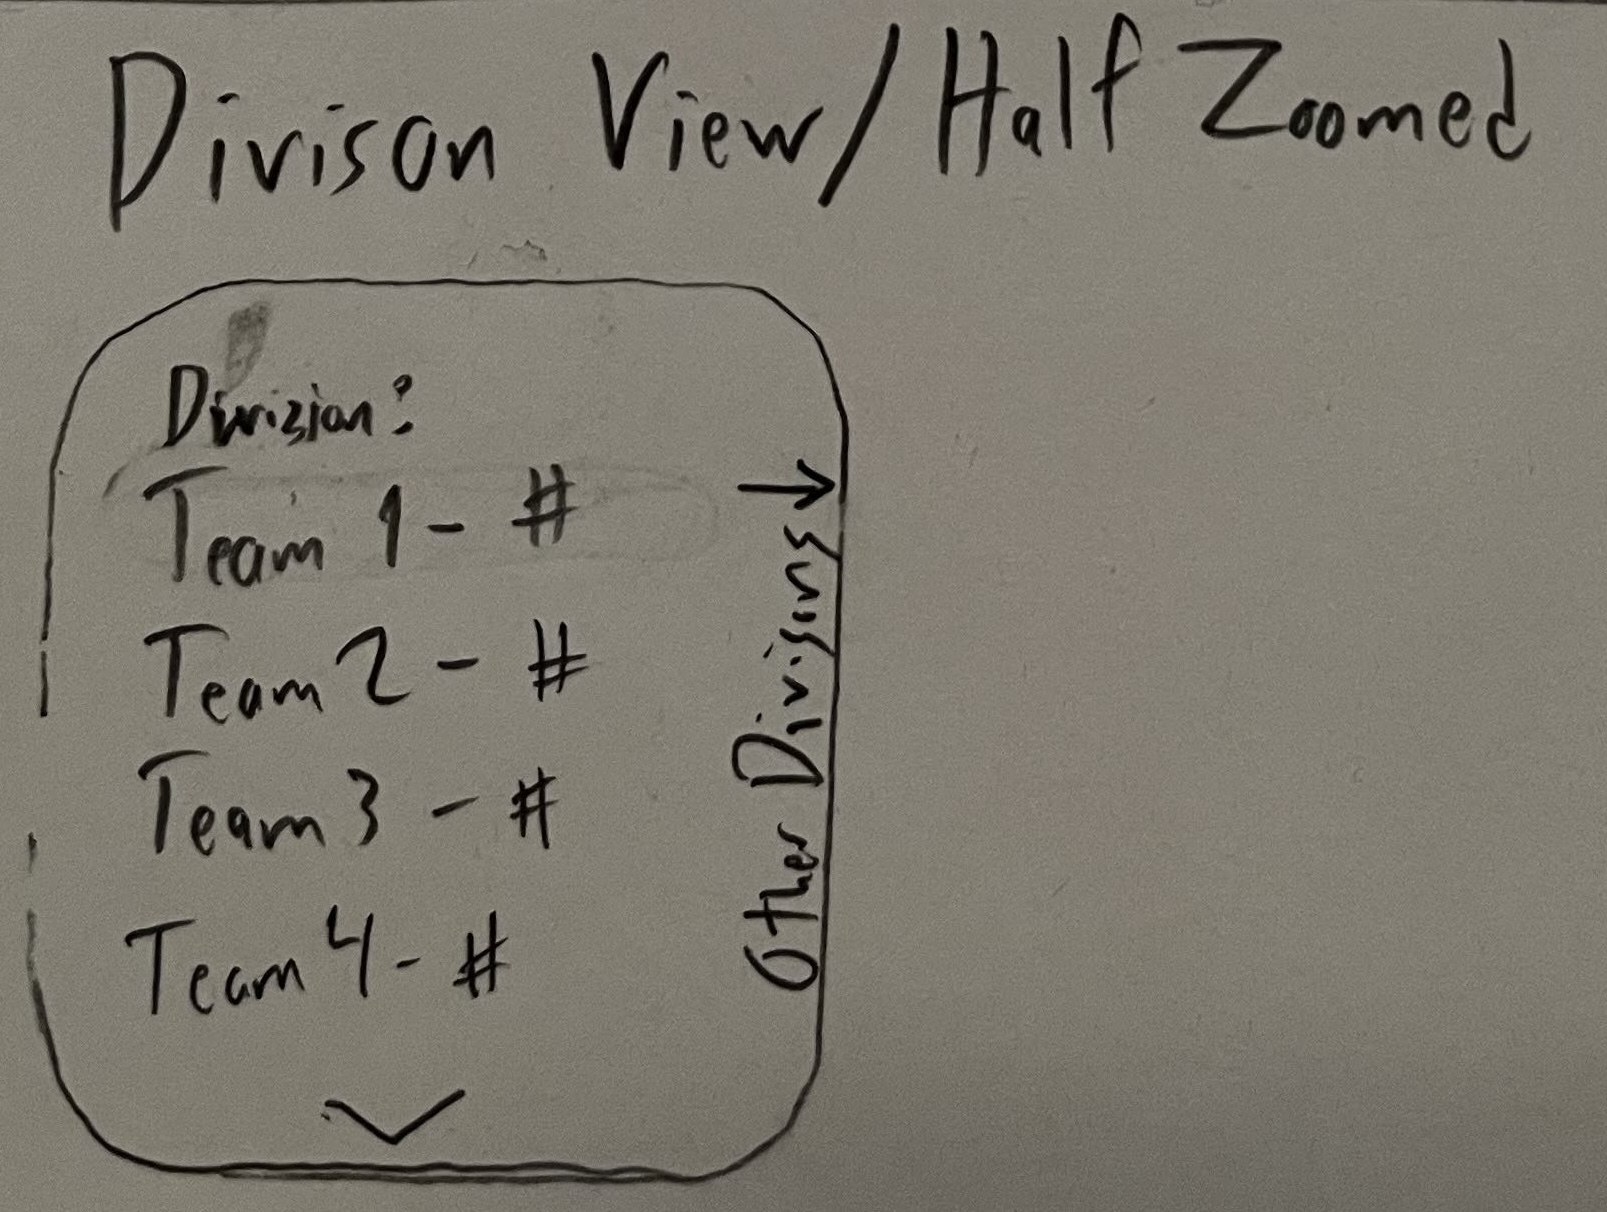 Divison View/Half Zoomed
Divizion:
Team 1 - #
Team 2 - #
Team 3 - #
Team 4 - #
→
Other Divisons